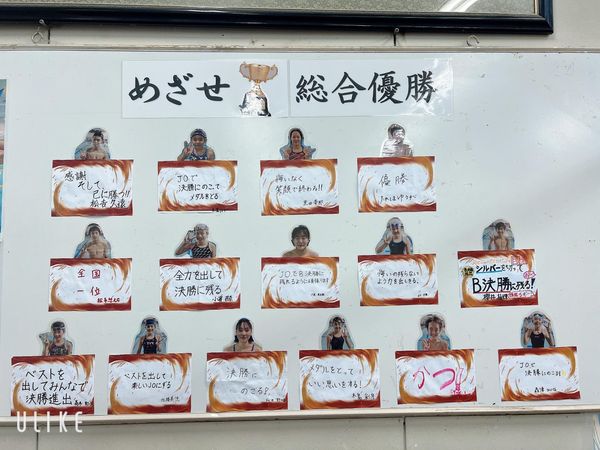 めざせ 総合優勝
感謝
そして
己に勝つ!!
JOで
決勝にのこって
メダルをとる
悔いなく
笑顔で終わる!!
優勝
全国
一位
全力を出して
決勝に残る
JOでB決勝に
悔いの残らない
よう力を出しきる。
シルバーをきって
B決勝に残る!
ベストを
出してみんなで
決勝進出
ベストを出して
楽しいJOにする
決勝に
のこる!
メダルをとって
いい思いをする!
かつ!!
JOで
決勝にのこる!
ULIKE